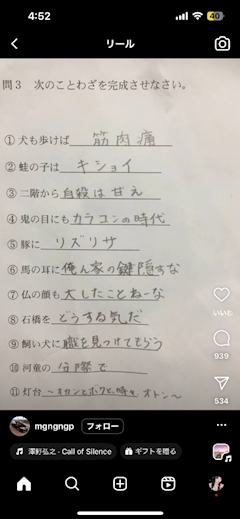 4:52
40
リール
問3 次のことわざを完成させなさい。
① 犬も歩けば 筋肉痛
② 蛙の子は キショイ
③ 二階から 自殺は甘え
④ 鬼の目にも カラコンの時代
⑤ 豚に リズリサ
⑥ 馬の耳に 俺ん家の鍵隠すな
⑦ 仏の顔も 大したことねーな
⑧ 石橋を どうする気だ
⑨ 飼い犬に 職を見つけてもらう
⑩ 河童の 分際で
⑪ 灯台 〜オカンとボクと、時々 オトン〜
いいね
939
534
mgngngp
フォロー
澤野弘之・Call of Silence
ギフトを贈る